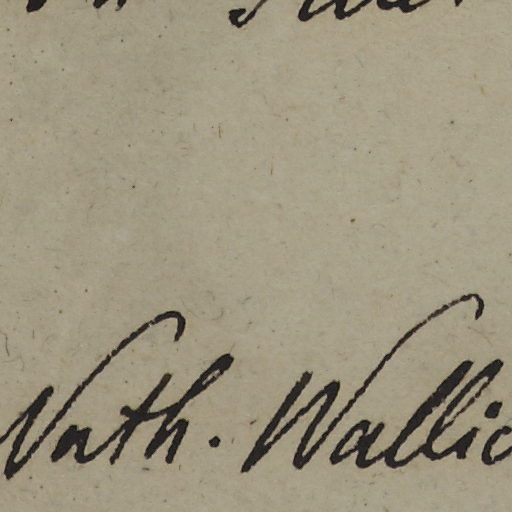 Nath. Wallic